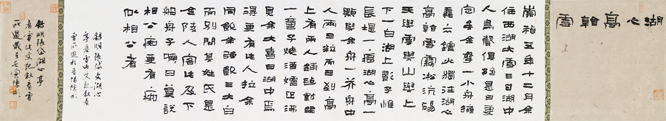 湖心亭看雪
崇禎五年十二月余
住西湖大雪三日湖中
人鳥聲俱絕是日更
定矣余拏一小舟擁
毳衣爐火獨往湖心
亭看雪霧凇沆碭
天與雲與山與上
下一白湖上影子惟
長堤一痕湖心亭一
點與余舟一芥舟中
人兩三粒而已到亭
上有兩人鋪氈對坐
一童子燒酒爐正沸
見余大喜曰湖中焉
得更有此人拉余
同飲余強飲三大白
而別問其姓氏是
金陵人客此及下
船舟子喃喃曰莫說
相公癡更有癡
似相公者
錄明張岱文湖心
亭看雪
錄明張岱湖心亭
看雪